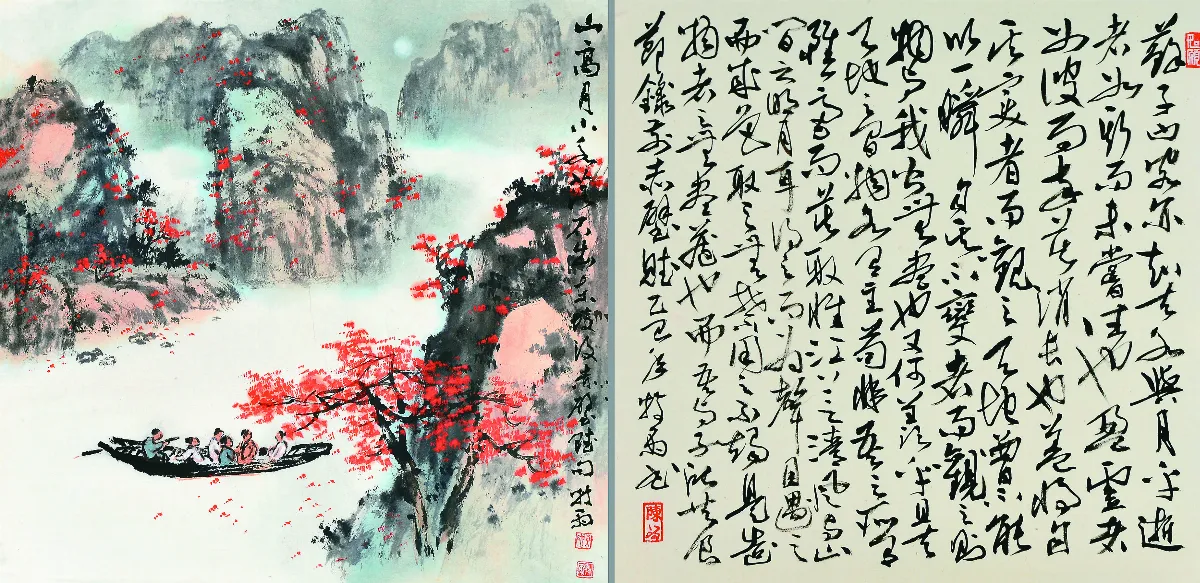 山高月小水落石出东坡後赤壁赋句
蘇子曰客亦知夫水與月乎逝
者如斯而未嘗往也盈虛者
如彼而卒莫消長也蓋將自
其變者而觀之天地曾不能
以一瞬自其不變者而觀之則
物與我皆無盡也又何羨乎且夫
天地之間物各有主苟非吾之所有
雖一毫而莫取惟江上之清風與山
間之明月耳得之而為聲目遇之
而成色取之無禁用之不竭是造
物者之無盡藏也而吾與子所共食
節錄前赤壁賦